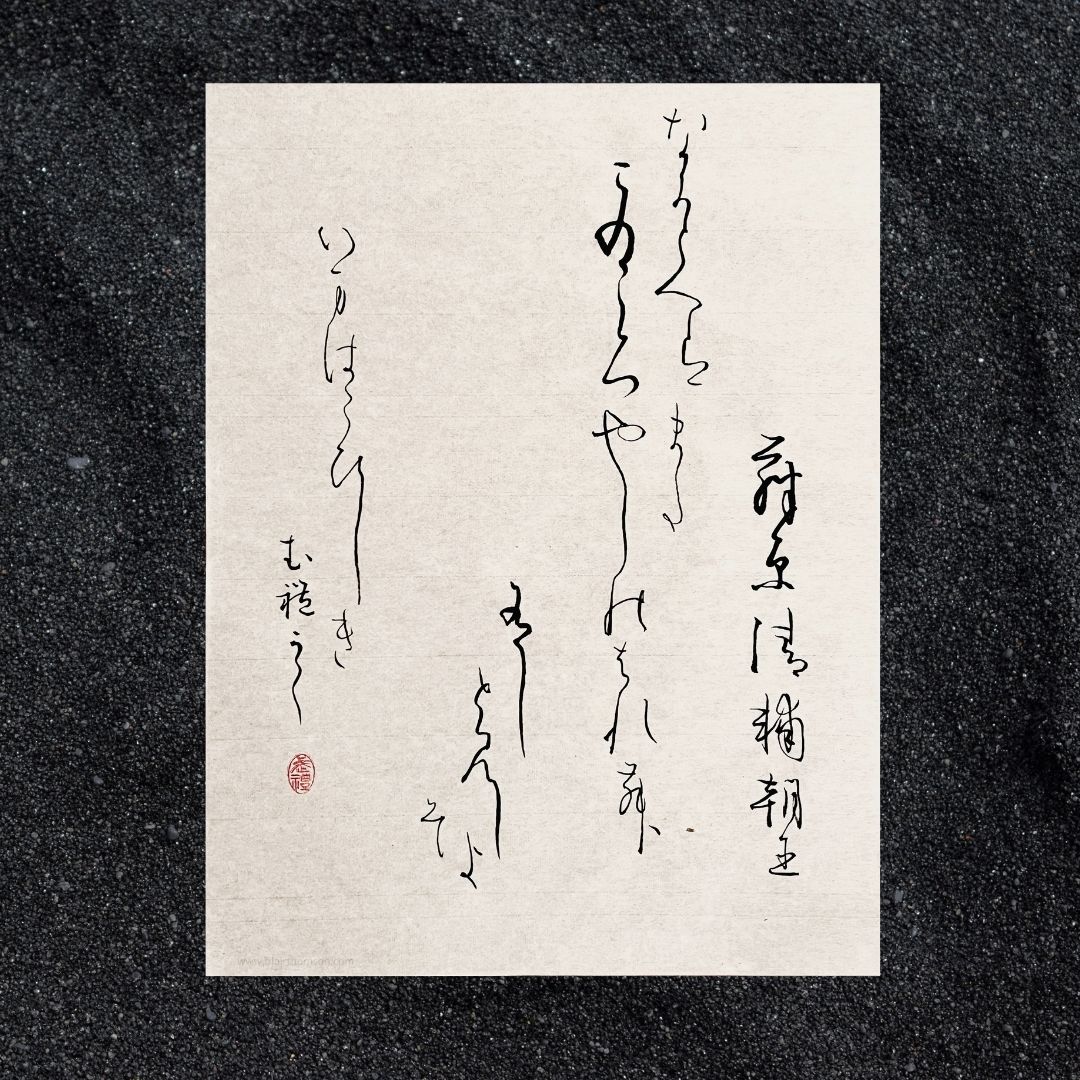 藤原清輔朝臣
なからへはまた
このころやしのはれ舞
うし
とみしよ
そ
いまはこひしき
む禮